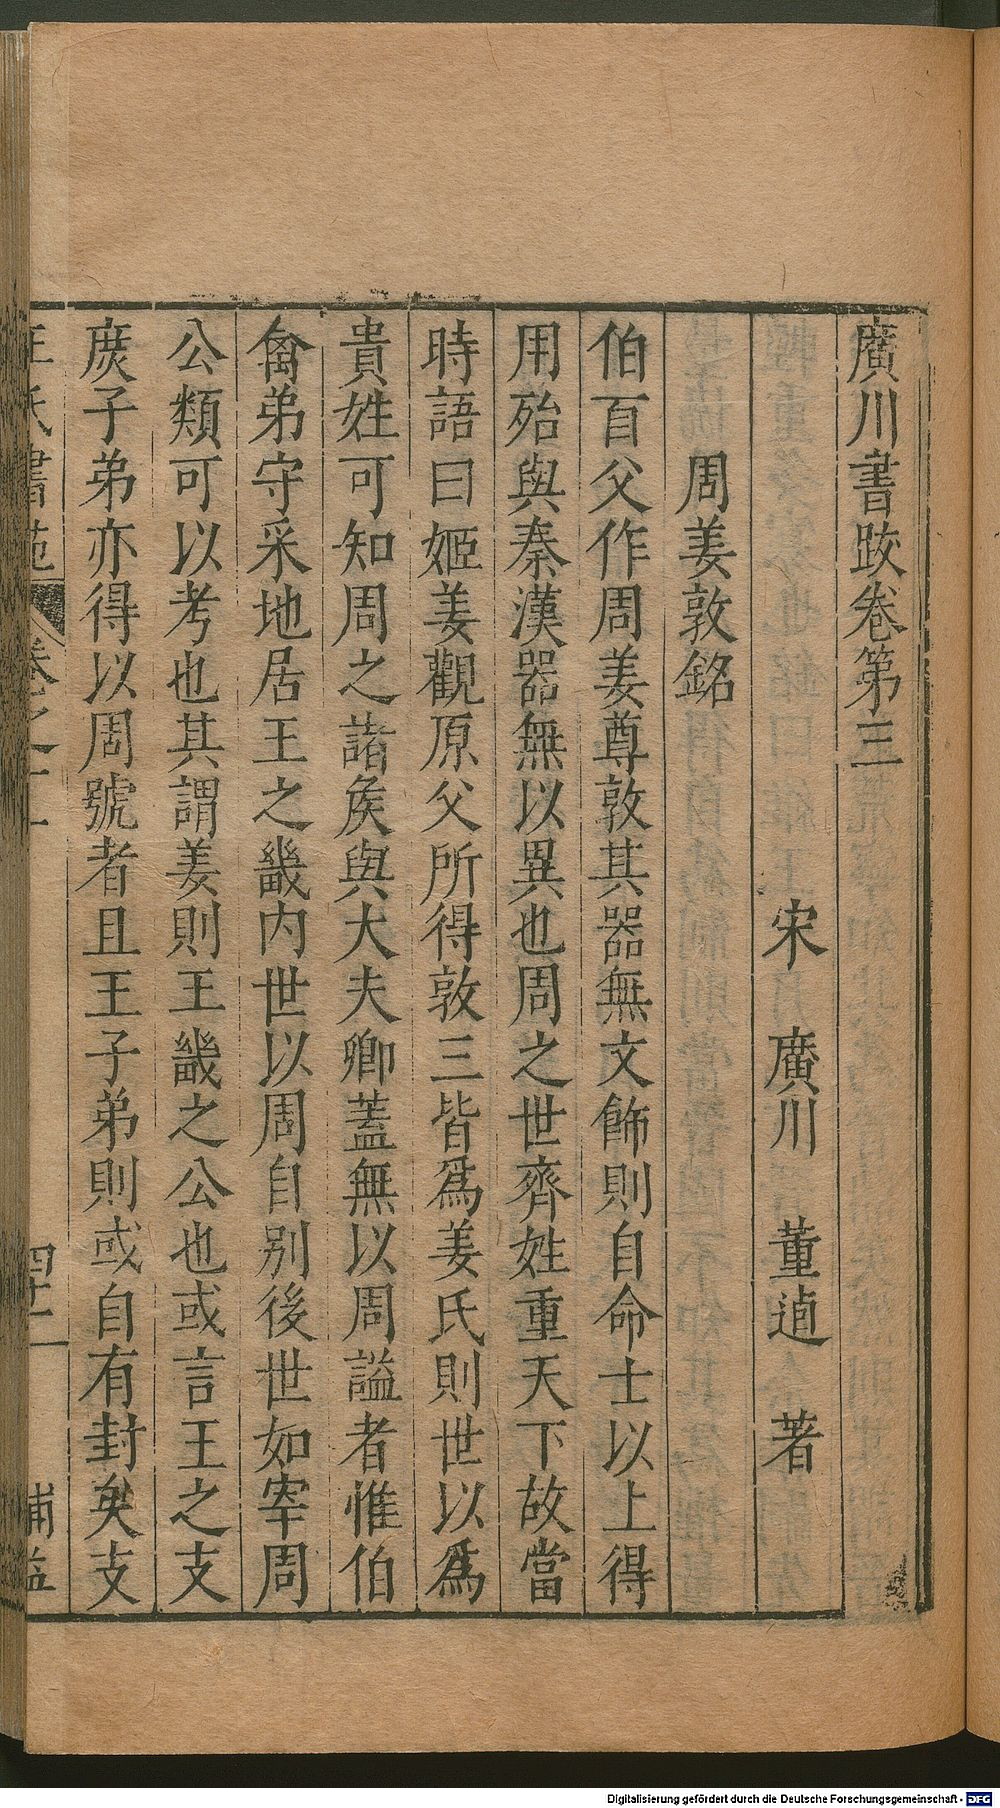 廣川書跋卷第三
宋　廣川　董逌　著
周姜敦銘
伯百父作周姜尊敦其器無文飾則自命士以上得
用殆與秦漢器無以異也周之世齊姓重天下故當
時語曰姬姜觀原父所得敦三皆爲姜氏則世以爲
貴姓可知周之諸矦與大夫卿蓋無以周謚者惟伯
禽弟守采地居王之畿内世以周自别後世如宰周
公類可以考也其謂姜則王畿之公也或言王之支
庻子弟亦得以周號者且王子弟則或自有封矣支
王氏書苑 卷之 四十二
Digitalisierung gefördert durch die Deutsche Forschungsgemeinschaft - DFG